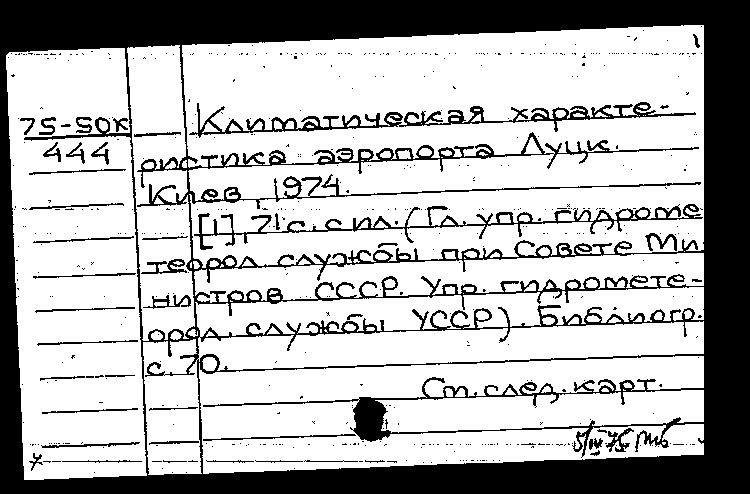 75-50к
444
Климатическая характе-
ристика аэропорта Луцк.
Киев, 1974.
[1], 71 с. с ил. (Гл. упр. гидроме
теорол. службы при Совете Ми
нистров СССР. Упр. гидромете-
орол. службы УССР). Библиогр.
с. 70.
См. след. карт.